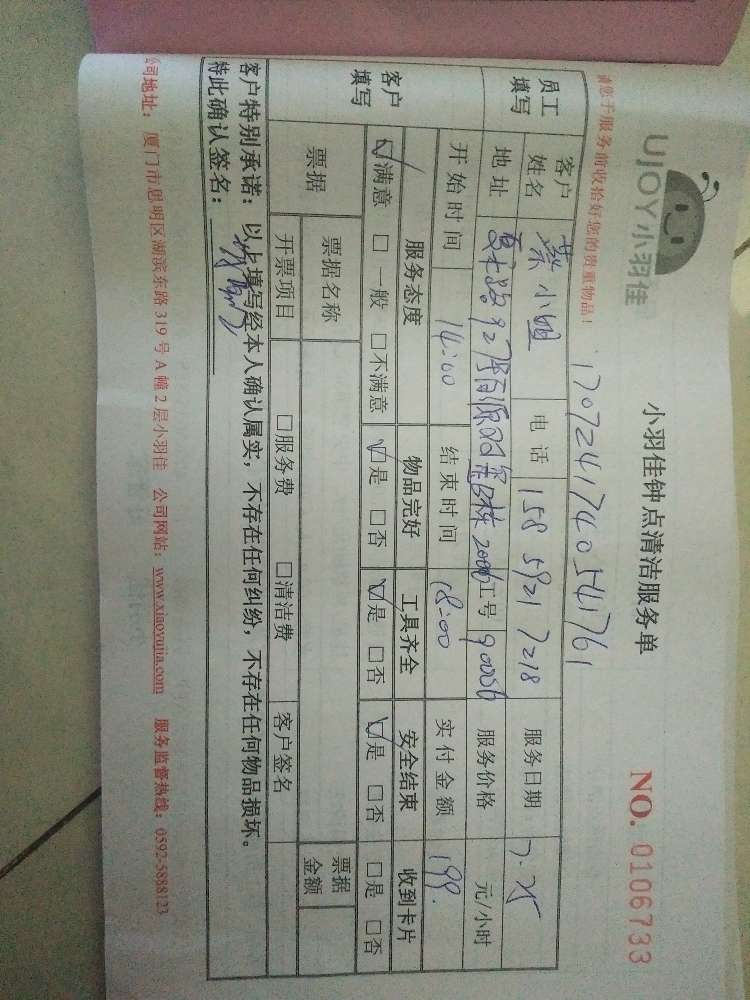 UJOY小羽佳
小羽佳钟点清洁服务单
NO. 0106733
请您于服务前收拾好您的贵重物品!
1707241740541761
员工填写
客户姓名 蔡小姐 电话 158 5921 7218 服务日期 7.25
地址 夏禾路927号 2006 工号 90056 服务价格 元/小时
开始时间 14:00 结束时间 18:00 实付金额 199.
客户填写
服务态度 物品完好 工具齐全 安全结束 收到卡片
☑满意 □一般 □不满意 ☑是 □否 ☑是 □否 ☑是 □否 □是 □否
票据 票据名称 票据金额
开票项目 □服务费 □清洁费 客户签名
客户特别承诺:以上填写经本人确认属实,不存在任何纠纷,不存在任何物品损坏。
特此确认签名:
公司地址:厦门市思明区湖滨东路319号A幢2层小羽佳 公司网站:www.xiaoyujia.com 服务监督热线:0592-5888123